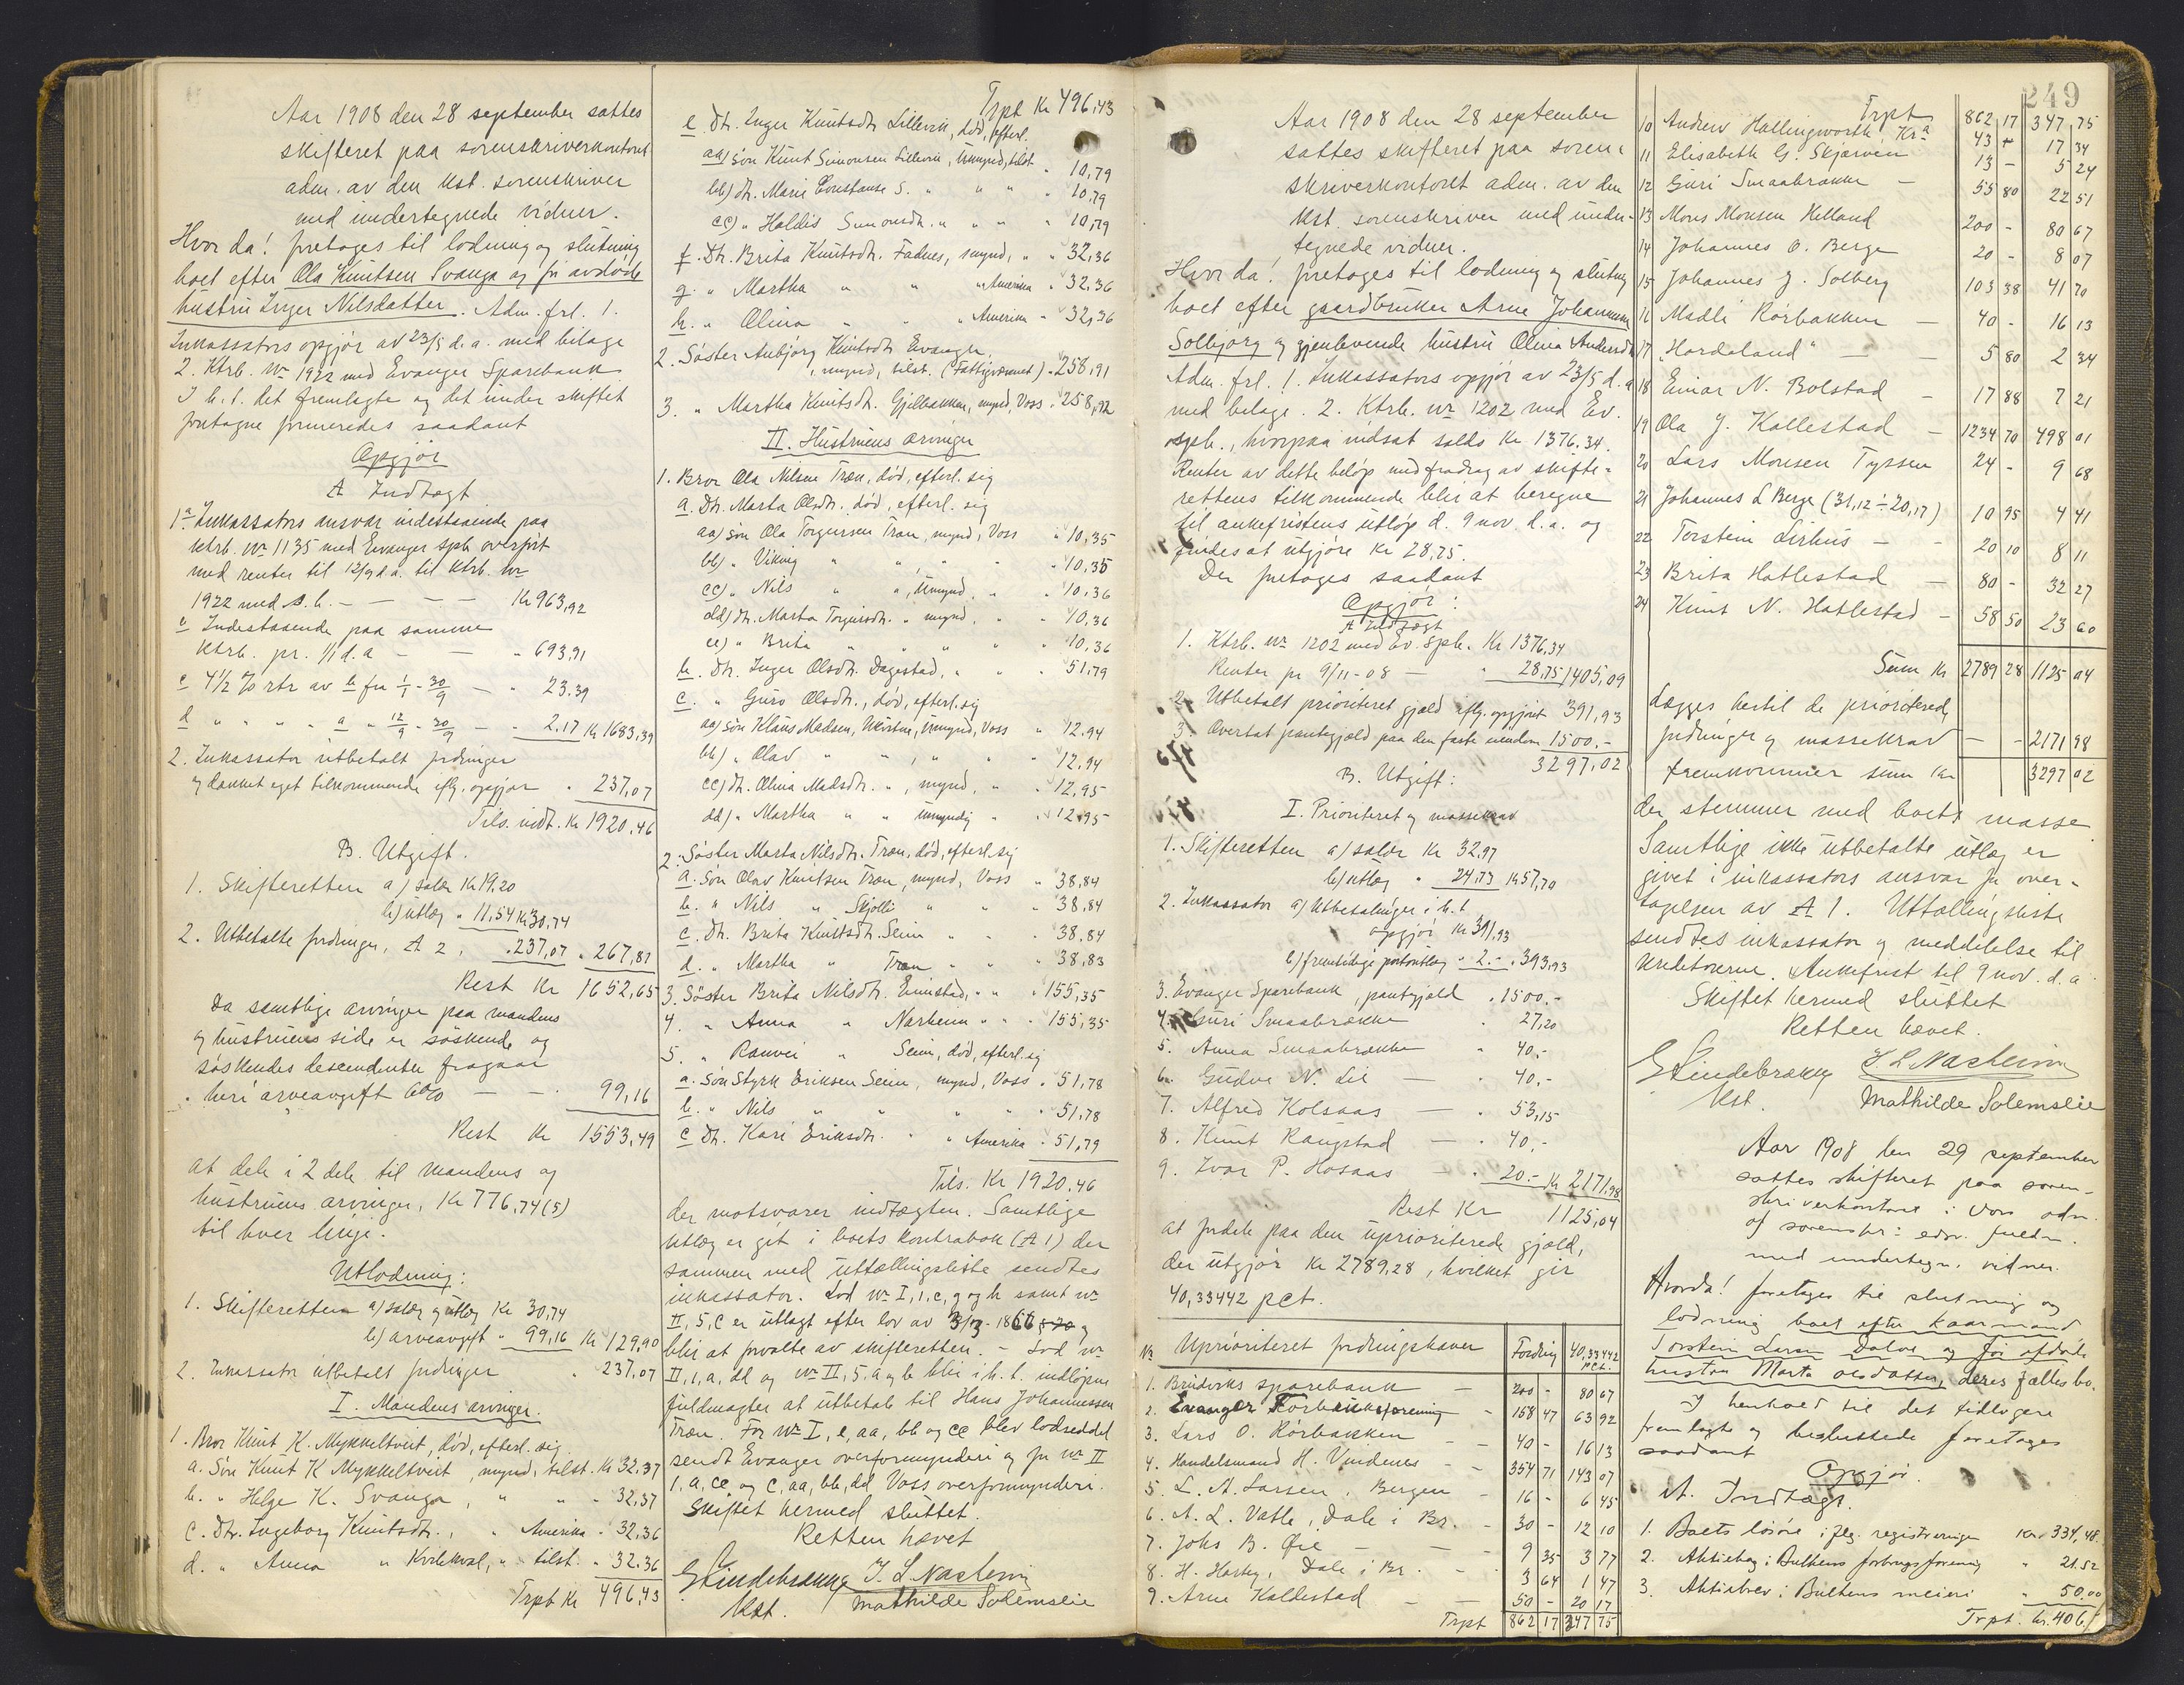 Aar 1908 den 28 september sattes
skifteret paa sorenskriverkontoret
adm. av den kst. sorenskriver
med undertegnede vidner.
Hvor da! foretages til lodning og slutning
boet efter Ola Knutsen Svanga og før avdøde
hustru Inger Nilsdatter. Adm. frl. 1.
Inkassators opgjør av 23/5 d.a. med bilage
2. Ktrb. nr 1922 med Evanger Sparebank
I h.t. det fremlagte og det under skiftet
foretagne formeredes saadant
Opgjør
A Indtægt
1 a Inkassators ansvar indestaaende paa
ktrb. nr 1135 med Evanger spb overført
med renter til 12/9 d.a. til ktrb. nr
1922 med s.b. - — — - Kr 963,92
b Indestaaende paa samme
ktrb. pr. 1/1 d.a — — " 693,91
c 4 1/2 % rtr av b fra 1/1 - 30/9 — " 23.39
d " " " " a " 12/9 - 30/9 — " 2,17 Kr 1683,39
2. Inkassator utbetalt fordringer
og dækket eget tilkommende iflg. opgjør " 237,07
Tils. indt. Kr 1920,46
B. Utgift.
1. Skifteretten a) salær Kr 19,20
b) utlæg " 11,54 Kr 30,74
2. Utbetalte fordringer, A 2, " 237,07 " 267,81
Rest Kr 1652,65
Da samtlige arvinger paa mandens
og hustruens side er søskende og
søskendes descendenter fragaar
heri arveavgift 6% — — " 99,16
Rest Kr 1553,49
at dele i 2 dele til mandens og
hustruens arvinger, Kr 776,74(5)
til hver linje.
Utlodning:
1. Skifteretten a) salær og utlæg Kr 30,74
b) arveavgift " 99,16 Kr 129,90
2. Inkassator utbetalt fordringer " 237,07
I. Mandens arvinger.
1. Bror Knut K. Mykkeltveit, død, efterl. sig
a. Søn Knut K Mykkeltveit, mynd, tilst. Kr 32,37
b. " Helge K. Svanga, " " " 32,37
c. Dtr. Ingeborg Knutsdtr., " Amerika " 32,36
d. " Anna " Kvilekval, " tilst. " 32.36
Trpt Kr 496,43
Trpt Kr 496,43
e. Dtr. Inger Knutsdtr Lillevik, død, efterl.
aa) Søn Knut Simonsen Lillevik, umynd, tilst " 10,79
bb) Dtr. Marie Constanse S. " " " " 10,79
cc) " Haldis Simonsdtr. " " " " 10,79
f. Dtr. Brita Knutsdtr. Fadnes, mynd, " " 32,36
g. " Martha " " " Amerika " 32.36
h. " Olina " " " Amerika " 32,36
2. Søster Anbjørg Knutsdtr Evanger
, mynd, tilst. (Fattigvæsenet) " 258,91
3. " Martha Knutsdtr. Gjelbakken, mynd, Voss " 258,92
II. Hustruens arvinger
1. Bror Ola Nilsen Træn, død, efterl. sig
a. Dtr. Marta Olsdtr., død, efterl. sig
aa) Søn Ola Torgersen Træn, mynd, Voss " 10,35
bb) " Viking " " , " " " 10,35
cc) " Nils " " , umynd, " " 10,36
dd) Dtr. Marta Torgersdtr. " mynd. " " 10,36
ee) " Brita " " " " " 10,36
b. Dtr. Inger Olsdtr. Dagestad, " " " 51,79
c. " Guro Olsdtr., død, efterl. sig
aa) Søn Klaus Madsen, umynd, Voss " 12.94
bb) " Olav " " , " " " 12,94
cc) Dtr. Olina Madsdtr. " , mynd, " " 12,95
dd) " Martha " " umyndig " " 12,95
2. Søster Marta Nilsdtr. Træn, død, efterl. sig
a. Søn Olav Knutsen Træn, mynd, Voss " 38,84
b. " Nils " Skjelli " " " 38,84
c. Dtr. Brita Knutsdtr. Seim " " " 38,84
d. " Martha " Træn " " " 38,83
3. Søster Brita Nilsdtr. Eimstad, " " " 155,35
4. " Anna " Narheim " " " 155,35
5. " Rannei " Seim, død, efterl. sig
a. Søn Styrk Eriksen Seim, mynd, Voss " 51,78
b. " Nils " " " " " 51,78
c Dtr. Kari Eriksdtr. " " Amerika " 51,79
Tils. Kr 1920.46
der motsvarer indtægten. Samtlige
utlæg er git i boets kontrabok (A 1) der
sammen med uttællingsliste sendtes
inkassator. Lod nr I, 1, c, g og h samt nr
II, 5, c er utlagt efter lov av 3/3 - 1866 og
blir at forvalte av skifteretten. - Lod nr
II, 1, a, dd og nr II, 5. a og b blir i h.t. indløpne
fuldmagter at utbetale til Hans Johannessen
Træn. For nr I, e, aa, bb og cc blev lodseddel
sendt Evanger overformynderi og for nr II
1, a, cc og c, aa, bb, dd Voss overformynderi.
Skiftet hermed sluttet.
Retten hævet
G Lindebrække J. L. Nasheim
kst. Mathilde Solemslie
Aar 1908 den 28 september
sattes skifteret paa soren-
skriverkontoret adm. av den
kst. sorenskriver med under-
tegnede vidner.
Hvor da! foretages til lodning og slutning
boet efter gaardbruker Arne Johannessen
Solbjørg og gjenlevende hustru Olina Andersdtr
Adm. frl. 1. Inkassators opgjør av 23/5 d.a
med bilage. 2. Ktrb. nr 1202 med Ev.
spb., hvorpaa indsat saldo Kr 1376.34.
Renter av dette beløp med fradrag av skifte-
rettens tilkommende blir at beregne
til ankefristens utløp d. 9 nov. d.a. og
findes at utgjøre Kr 28,75.
Der foretages saadant
Opgjør:
A Indtægt
1. Ktrb. nr 1202 med Ev. spb. Kr 1376,34
Renter pr 9/11-08 — " 28,75 1405,09
2. Utbetalt prioriteret gjæld iflg. opgjøret 391,93
3. Overtat pantegjæld paa den faste eiendom 1500.-
3297,02
B. Utgift:
I. Prioriteret og massekrav
1. Skifteretten a) salær Kr 32,97
b) utlæg " 24,73 Kr 57,70
2. Inkassator a) Utbetalinger i h.t
opgjør Kr 391,93
b) fremtidige portoutlæg " 2.- " 393,93
3. Evanger Sparebank, pantegjæld " 1500.-
4. Guri Smaabrække " 27,20
5. Anna Smaabrække " 40,-
6. Gudve N. Lie — " 40,-
7. Alfred Kolsaas — " 53,15
8. Knut Raugstad — " 40,-
9. Ivar P. Hosaas — " 20.- Kr 2171,98
Rest Kr 1125,04
at fordele paa den uprioriterede gjæld,
der utgjør Kr 2789,28, hvilket gir
40,33442 pct.
Nr Uprioriteret fordringshaver Fordring 40,33442 pct.
1. Bruviks sparebank — 200 - 80 67
2. Evanger Forbruksforening - 158 47 63 92
3. Lars O. Rørbakken - - 40 - 16 13
4. Handelsmand H. Vindenes - - 354 71 143 07
5. L. A. Larsen, Bergen - 16 - 6 45
6. A. L. Vatle, Dale i Br. - 30 - 12 10
7. Johs B. Øie — - 9 35 3 77
8. H. Dale i Br. - - 3 64 1 47
9. Arne Kaldestad — — 50 - 20 17
Trpt 862 17 347 75
249
Trpt 862 17 347 75
10 Andrew Hallingworth Kra 43 - 17 34
11 Elisabeth G. Skjerven 13 - 5 24
12 Guri Smaabrække — 55 80 22 51
13 Mons Monsen Helland 200 - 80 67
14 Johannes O. Berge 20 - 8 07
15 Johannes J. Solberg 103 38 41 70
16 Madli Rørbakken — 40 - 16 13
17 "Hordaland" — — 5 80 2 34
18 Einar N. Bolstad - 17 88 7 21
19 Ola J. Kallestad — 1234 70 498 01
20 Lars Monsen Tyssen 24 - 9 68
21 Johannes L Berge (31,12 ÷ 20,17) 10 95 4 41
22 Torstein Lirhus - - 20 10 8 11
23 Brita Hatlestad — 80 - 32 27
24 Knut N. Hatlestad - 58 50 23 60
Sum Kr 2789 28 1125 04
Lægges hertil de prioriterede
fordringer og massekrav — - 2171 98
fremkommer sum Kr 3297 02
der stemmer med boets masse
Samtlige ikke utbetalte utlæg er
givet i inkassators ansvar for over-
tagelsen av A 1. Uttællingsliste
sendtes inkassator og meddelelse til
kreditorerne. Ankefrist til 9 nov. d.a.
Skiftet hermed sluttet
Retten hævet.
G Lindebrække J. L. Nasheim
kst. Mathilde Solemslie
Aar 1908 den 29 september
sattes skifteret paa soren-
skriverkontoret i Voss adm.
af sorenskr: edsv. fuldm.
med undertegn. vidner.
Hvorda! foretages til slutning og
lodning boet efter kaarmand
Torstein Larsen Dalve og før afdøde
hustru Marta Olsdatter, deres fælles bo.
I henhold til det tidligere
fremlagte og besluttede foretages
saadant
Opgjør.
A. Indtægt.
1. Boets løsøre iflg. registreringen Kr. 334,48
2. Aktiebrev i Bulkens forbrugsforening " 21.52
3. Aktiebrev i Bulkens meieri " 50,00
Trpt. Kr. 406,